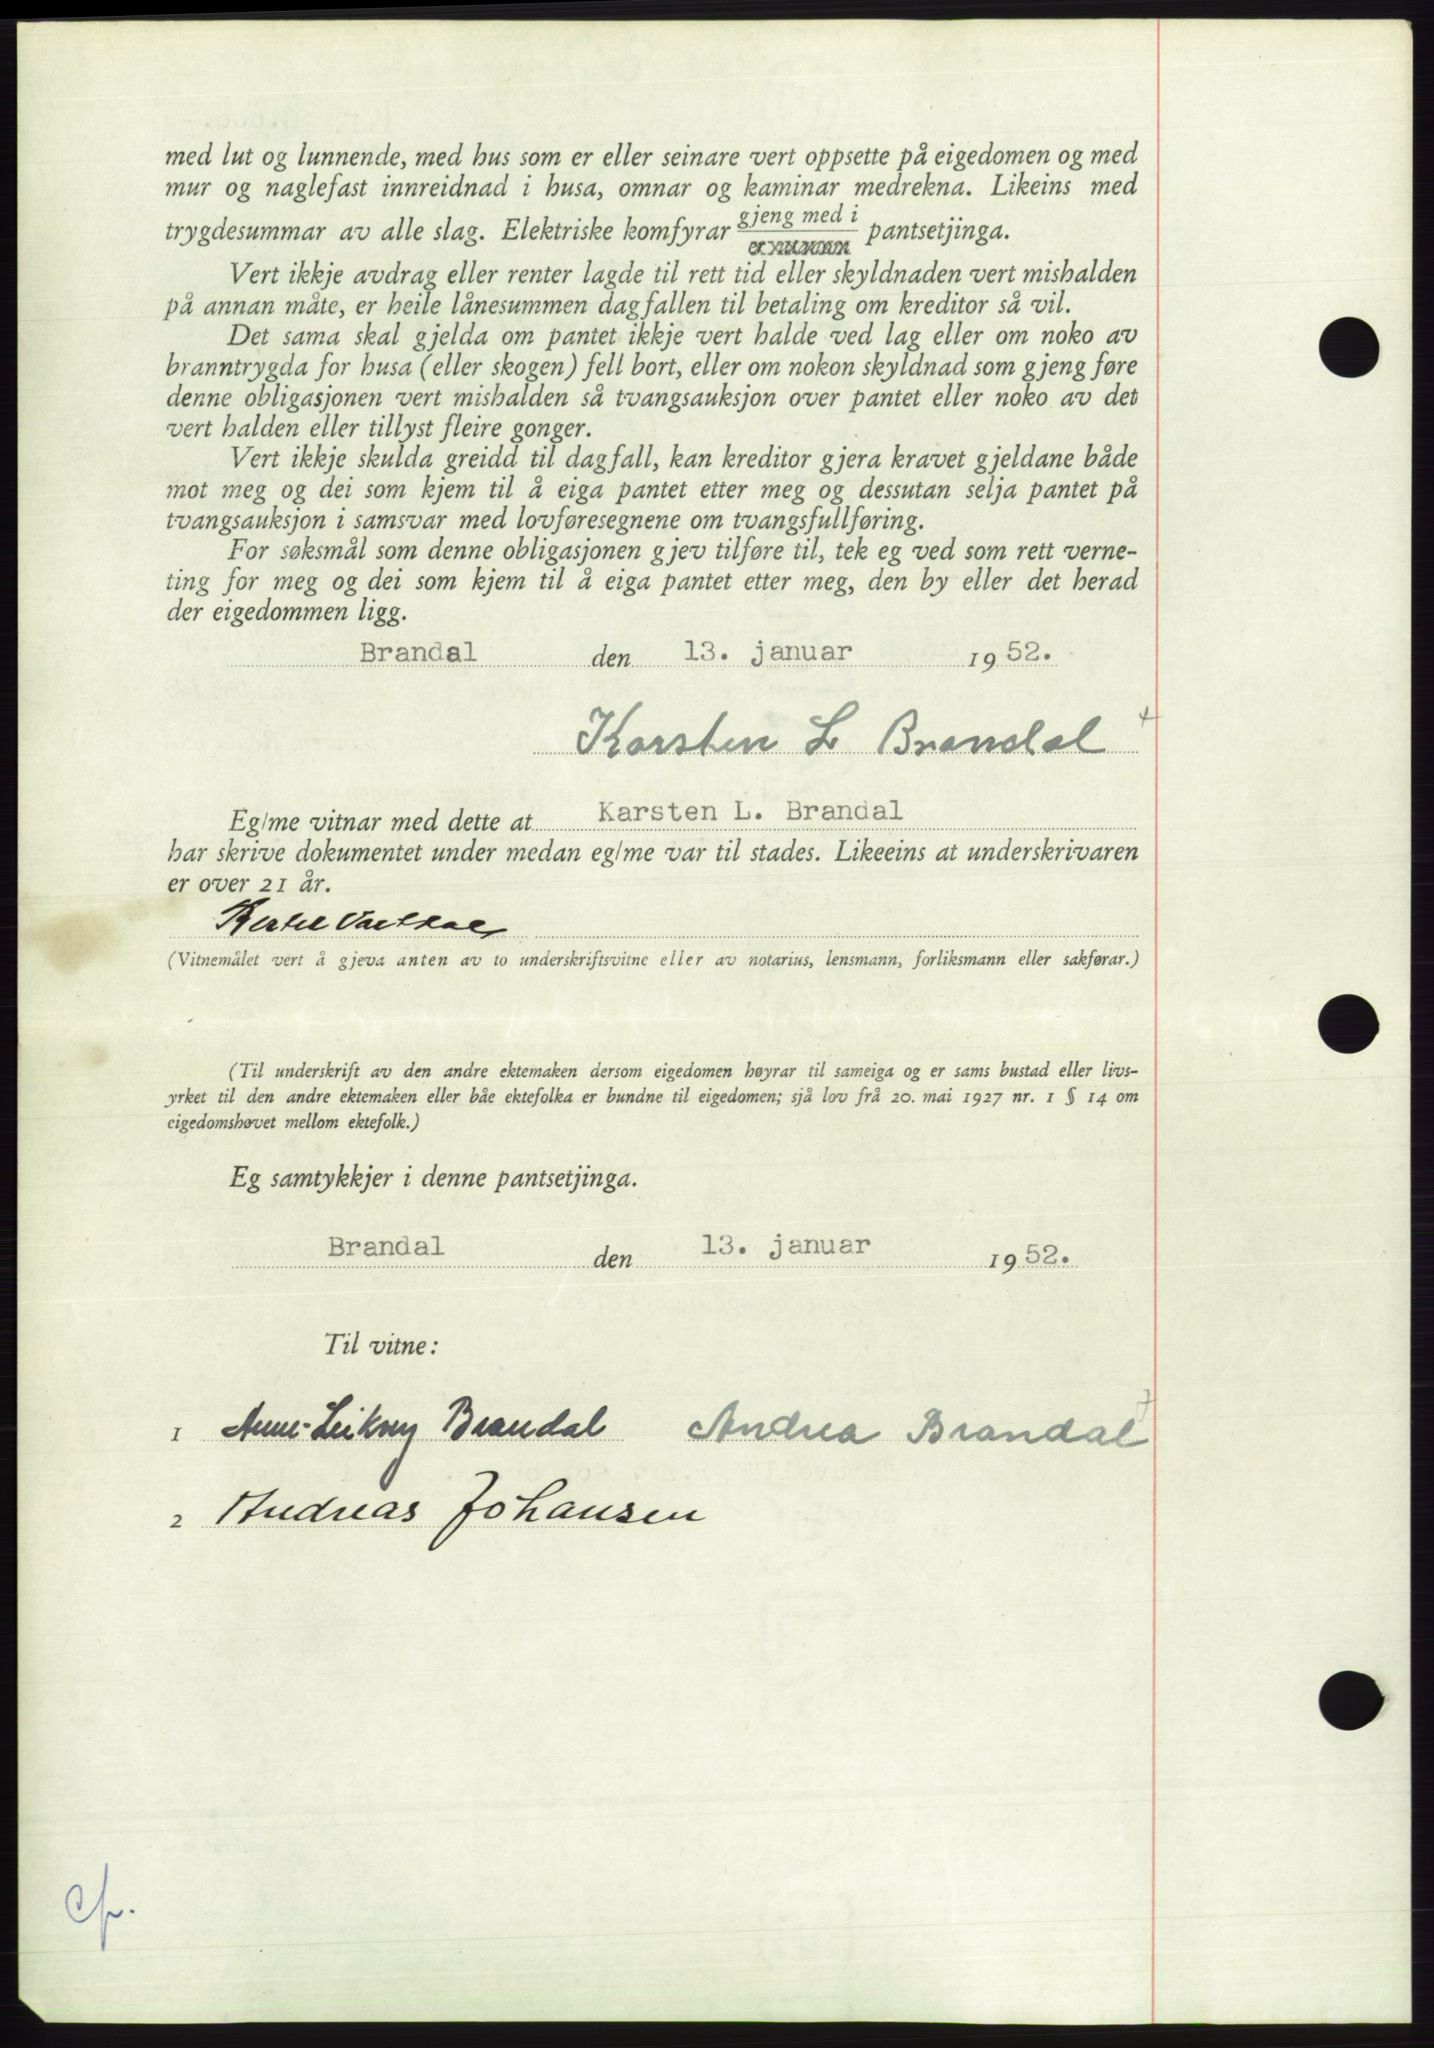 med lut og lunnende, med hus som er eller seinare vert oppsette på eigedomen og med
mur og naglefast innreidnad i husa, omnar og kaminar medrekna. Likeins med
trygdesummar av alle slag. Elektriske komfyrar gjeng med i pantsetjinga.
Vert ikkje avdrag eller renter lagde til rett tid eller skyldnaden vert mishalden
på annan måte, er heile lånesummen dagfallen til betaling om kreditor så vil.
Det sama skal gjelda om pantet ikkje vert halde ved lag eller om noko av
branntrygda for husa (eller skogen) fell bort, eller om nokon skyldnad som gjeng føre
denne obligasjonen vert mishalden så tvangsauksjon over pantet eller noko av det
vert halden eller tillyst fleire gonger.
Vert ikkje skulda greidd til dagfall, kan kreditor gjera kravet gjeldane både
mot meg og dei som kjem til å eiga pantet etter meg og dessutan selja pantet på
tvangsauksjon i samsvar med lovføresegnene om tvangsfullføring.
For søksmål som denne obligasjonen gjev tilføre til, tek eg ved som rett verne-
ting for meg og dei som kjem til å eiga pantet etter meg, den by eller det herad
der eigedommen ligg.
Brandal den 13. januar 1952.
Karsten L Brandal
Eg/me vitnar med dette at Karsten L. Brandal
har skrive dokumentet under medan eg/me var til stades. Likeeins at underskrivaren
er over 21 år.
(Vitnemålet vert å gjeva anten av to underskriftsvitne eller av notarius, lensmann, forliksmann eller sakførar.)
(Til underskrift av den andre ektemaken dersom eigedomen høyrar til sameiga og er sams bustad eller livs-
yrket til den andre ektemaken eller båe ektefolka er bundne til eigedomen; sjå lov frå 20. mai 1927 nr. 1 § 14 om
eigedomshøvet mellom ektefolk.)
Eg samtykkjer i denne pantsetjinga.
Brandal den 13. januar 1952.
Til vitne:
1 Brandal Andrea Brandal
2 Andreas Johansen